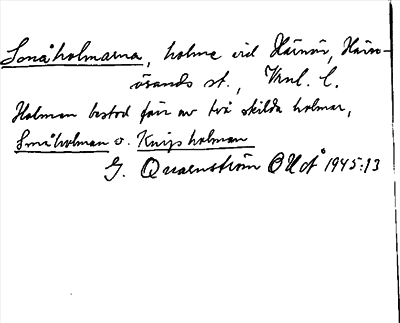 Småholmarna, holme vid Härnön, Härnö-
sands st., Vnl. l.
Holmen bestod förr av två skilda holmar,
Småholman o. Knipsholman
G. Quarnström BHÅ 1945:13